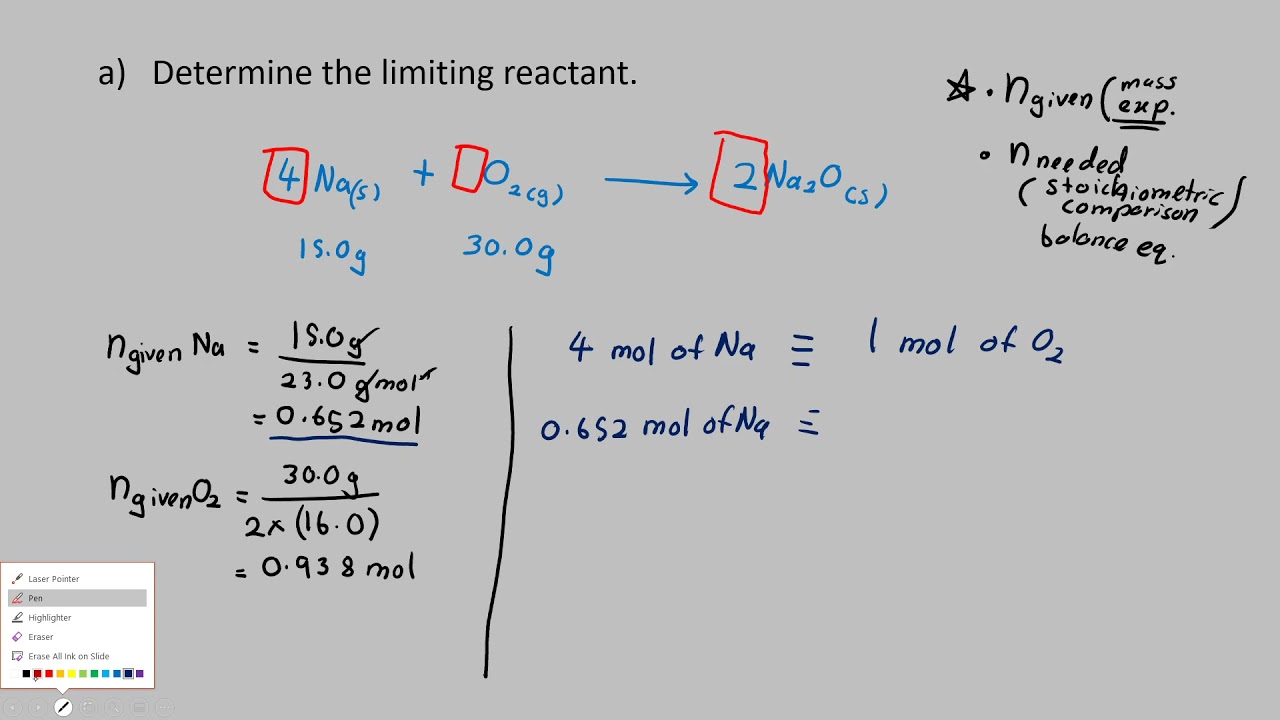 a) Determine the limiting reactant.
☆ • n given (mass
exp.
• n needed
(stoichiometric
comparison)
balance eq.
4 Na(s) + O2(g) ⟶ 2 Na2O(s)
15.0g 30.0g
n given Na = 15.0g
23.0 g/mol
= 0.652 mol
n given O2 = 30.0g
2 × (16.0)
= 0.938 mol
4 mol of Na ≡ 1 mol of O2
0.652 mol of Na ≡
Laser Pointer
Pen
Highlighter
Eraser
Erase All Ink on Slide